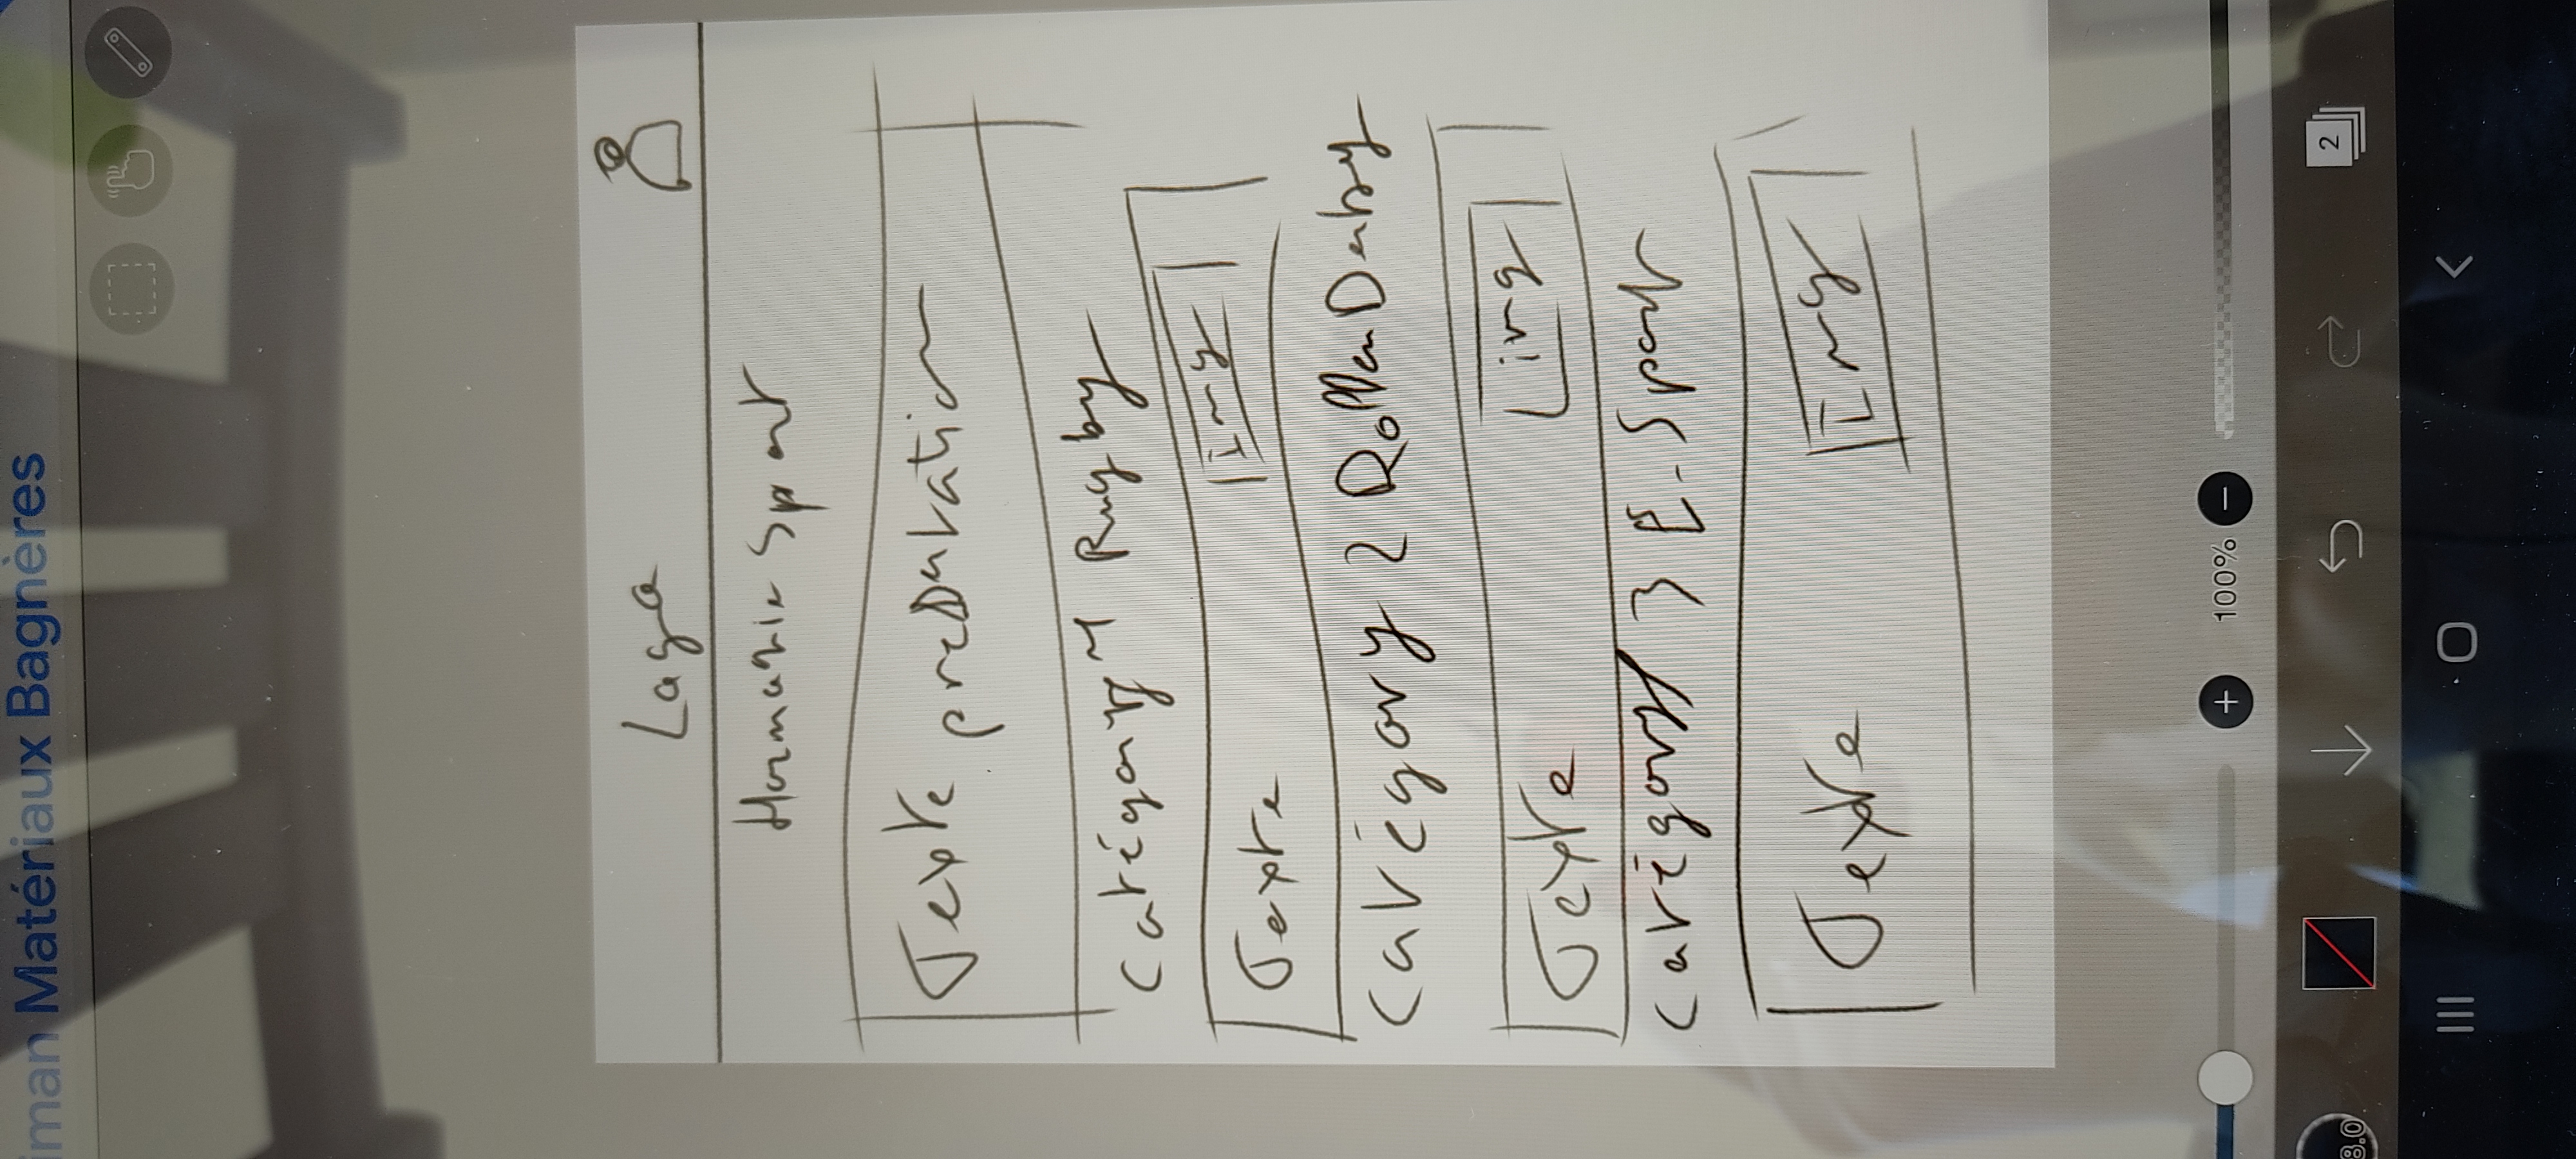 iman Matériaux Bagnères
Laga
Harmonie Sport
Texte presentation
Catégory 1 Rugby
Texte img
Catégory 2 Roller Derby
Texte img
Catégory 3 E-Sport
Texte img
100%
8.0
2